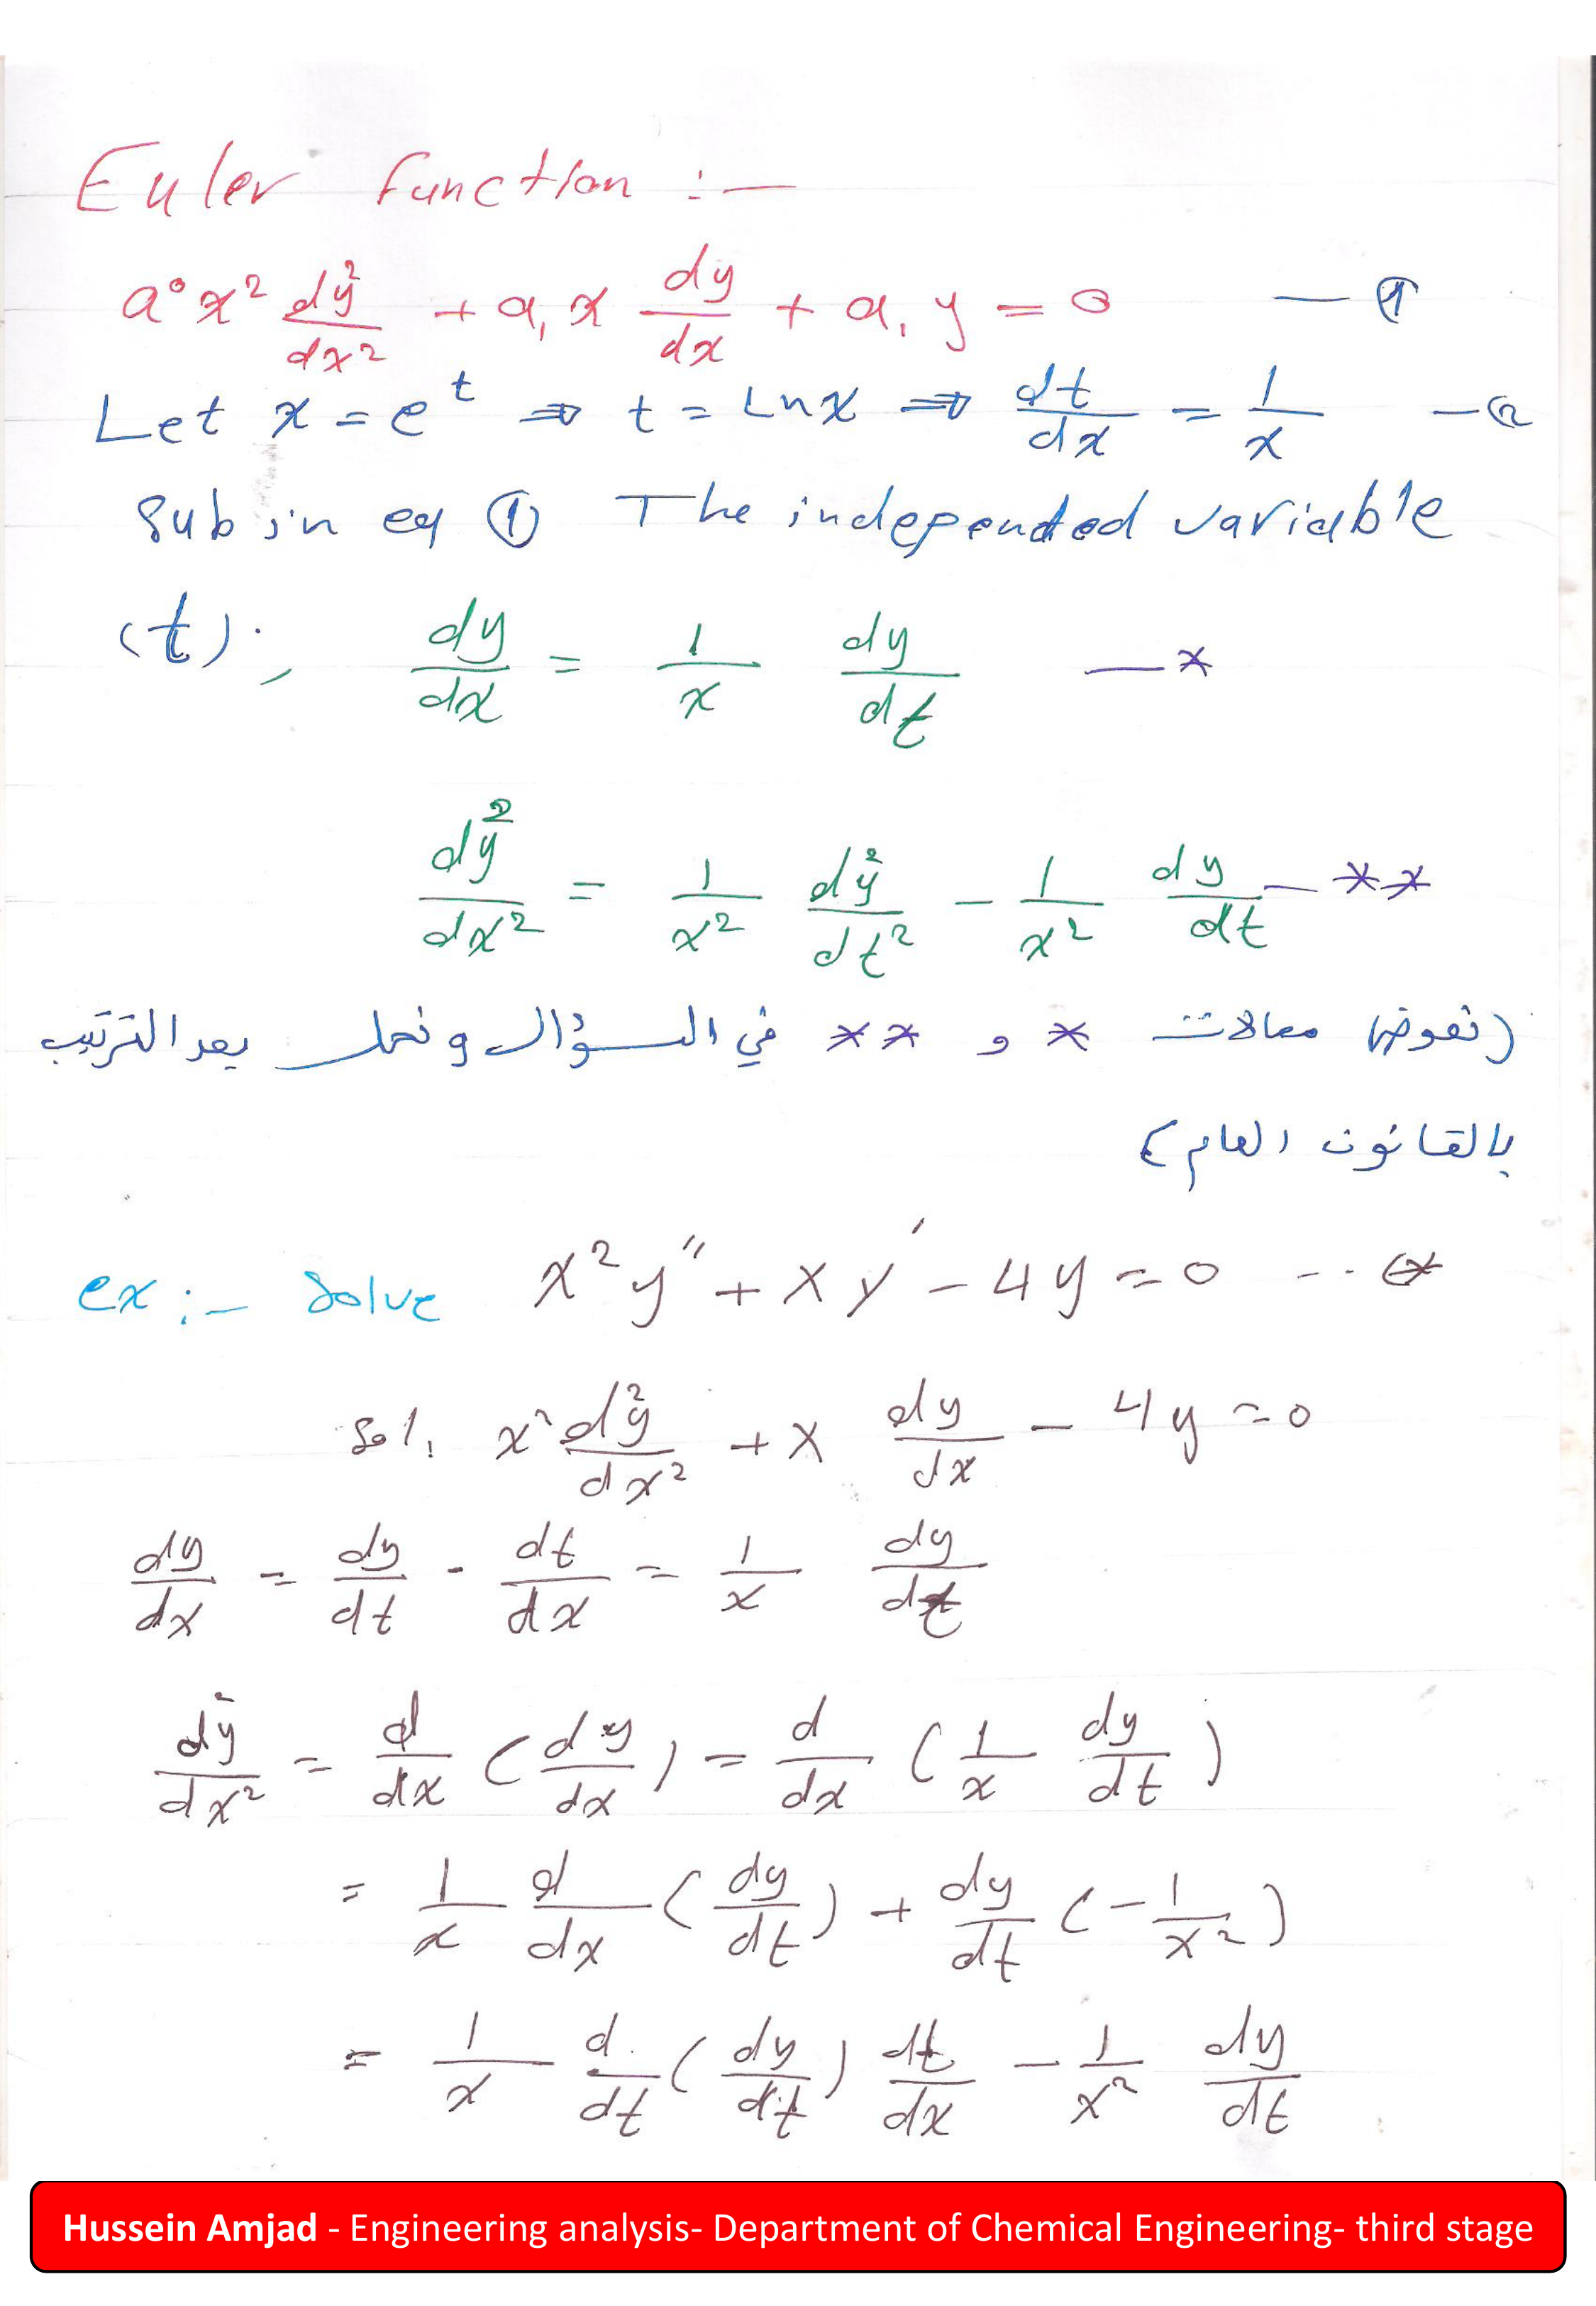 Euler function :—
a° x² d²y/dx² + a₁ x dy/dx + a₁ y = 0 — ①
Let x = e^t ⇒ t = Ln x ⇒ dt/dx = 1/x — ②
Sub in eq ① The independed variable
(t): dy/dx = 1/x dy/dt — *
d²y/dx² = 1/x² d²y/dt² - 1/x² dy/dt — **
(نعوض معالات * و ** في السؤال ونحل بعد الترتيب
بالقانون العام)
ex :- Solve x²y″ + xy′ - 4y = 0 -·· ⊛
Sol. x² d²y/dx² + x dy/dx - 4y = 0
dy/dx = dy/dt · dt/dx = 1/x dy/dt
d²y/dx² = d/dx (dy/dx) = d/dx (1/x dy/dt)
= 1/x d/dx (dy/dt) + dy/dt (-1/x²)
= 1/x d/dt (dy/dt) dt/dx - 1/x² dy/dt
Hussein Amjad - Engineering analysis- Department of Chemical Engineering- third stage